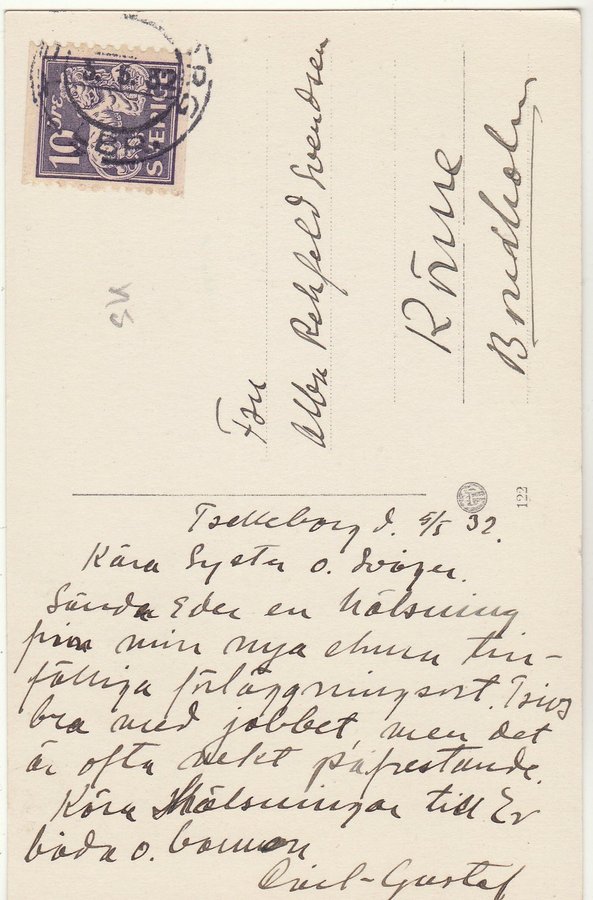 10 ÖRE
SVERIGE
BORG
Fru
Alba Rehfeld Svendsen
Rönne
Bornholm
SU
122
Trelleborg d. 5/5 32.
Kära Syster o. Svåger.
Sända Eder en hälsning
från min nya ehuru till-
fälliga förläggningsort. Trivs
bra med jobbet, men det
är ofta nekt påfrestande.
Kära Hälsningar till Er
båda o. barnen
Gustaf